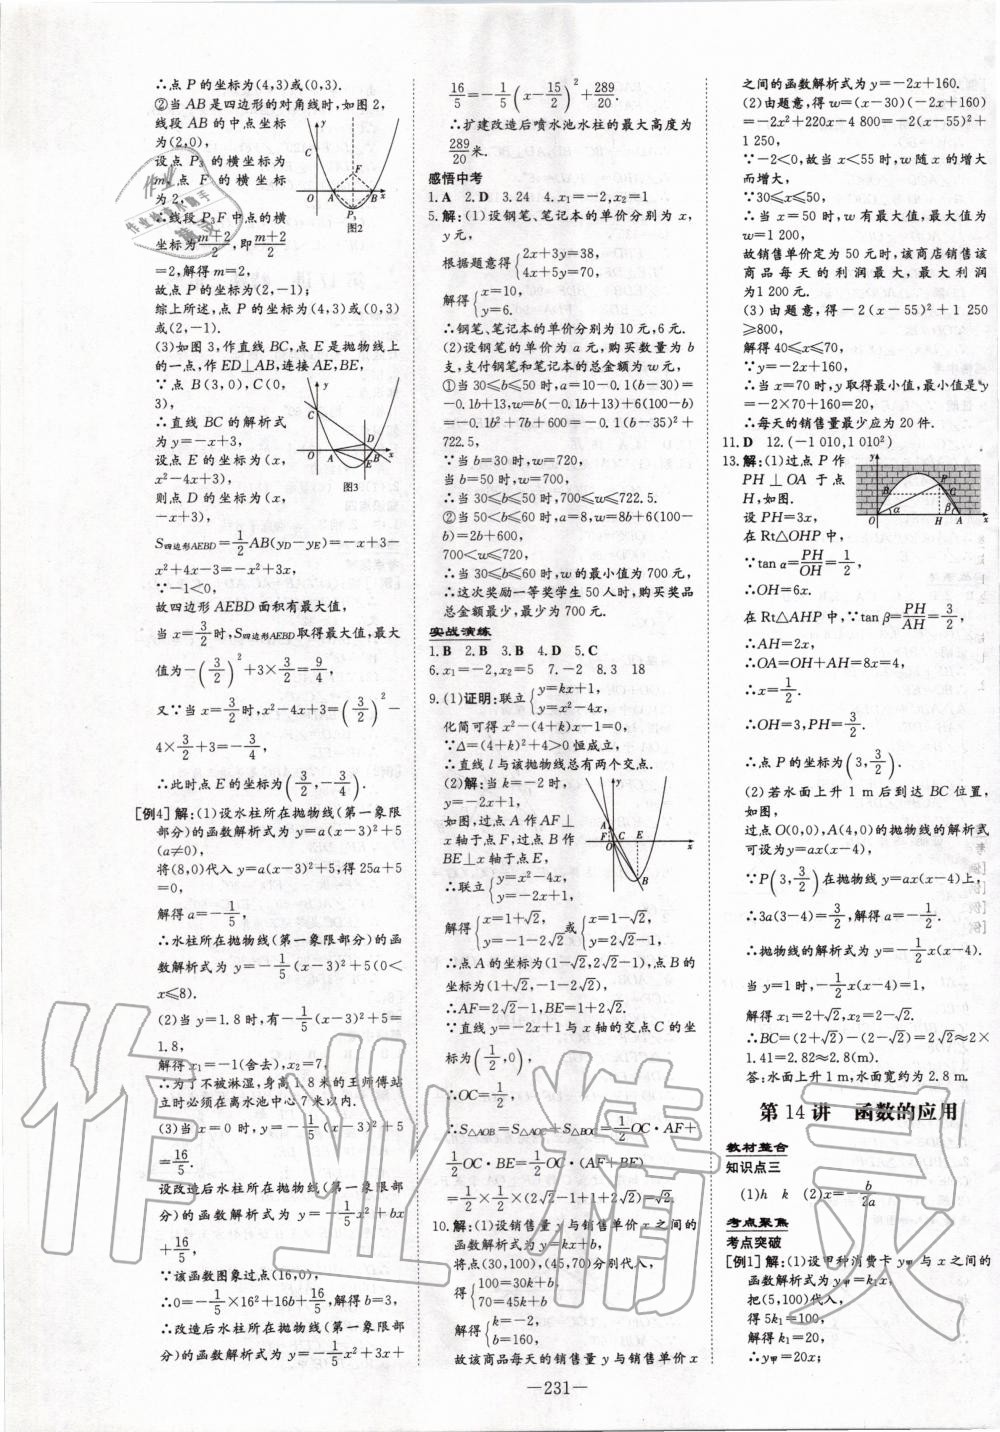 ∴点 P 的坐标为(4,3)或(0,3).
②当 AB 是四边形的对角线时,如图 2,
线段 AB 的中点坐标
为(2,0),
设点 P₃ 的横坐标为
m,点 F 的横坐标
为 2,
∴线段 P₃F 中点的横
坐标为(m+2)/2,即(m+2)/2
=2,解得 m=2,
故点 P 的坐标为(2,-1);
综上所述,点 P 的坐标为(4,3)或(0,3)
或(2,-1).
(3)如图 3,作直线 BC,点 E 是抛物线上
的一点,作 ED⊥AB,连接 AE,BE,
∵点 B(3,0),C(0,
3),
∴直线 BC 的解析式
为 y=-x+3,
设点 E 的坐标为(x,
x²-4x+3),
则点 D 的坐标为(x,
-x+3),
S四边形AEBD=1/2 AB(yD-yE)=-x+3-
x²+4x-3=-x²+3x,
∵-1<0,
故四边形 AEBD 面积有最大值,
当 x=3/2时,S四边形AEBD取得最大值,最大
值为-(3/2)²+3×3/2=9/4,
又∵当 x=3/2时,x²-4x+3=(3/2)²-
4×3/2+3=-3/4,
∴此时点 E 的坐标为(3/2,-3/4).
[例4] 解:(1)设水柱所在抛物线(第一象限
部分)的函数解析式为 y=a(x-3)²+5
(a≠0),
将(8,0)代入 y=a(x-3)²+5,得 25a+5
=0,
解得 a=-1/5,
∴水柱所在抛物线(第一象限部分)的函
数解析式为 y=-1/5(x-3)²+5(0<
x≤8).
(2)当 y=1.8 时,有-1/5(x-3)²+5=
1.8,
解得 x₁=-1(舍去),x₂=7,
∴为了不被淋湿,身高 1.8 米的王师傅站
立时必须在离水池中心 7 米以内.
(3)当 x=0 时,y=-1/5(x-3)²+5=
16/5.
设改造后水柱所在抛物线(第一象限部
分)的函数解析式为 y=-1/5x²+bx
+16/5,
∵该函数图象过点(16,0),
∴0=-1/5×16²+16b+16/5,解得 b=3,
∴改造后水柱所在抛物线(第一象限部
分)的函数解析式为 y=-1/5x²+3x+
16/5=-1/5(x-15/2)²+289/20.
∴扩建改造后喷水池水柱的最大高度为
289/20米.
感悟中考
1.A 2.D 3.24 4.x₁=-2,x₂=1
5.解:(1)设钢笔、笔记本的单价分别为 x,
y 元,
根据题意得{2x+3y=38,
4x+5y=70,
解得{x=10,
y=6.
∴钢笔、笔记本的单价分别为 10 元,6 元.
(2)设钢笔的单价为 a 元,购买数量为 b
支,支付钢笔和笔记本的总金额为 w 元,
①当 30≤b≤50 时,a=10-0.1(b-30)=
-0.1b+13,w=b(-0.1b+13)+6(100-b)
=-0.1b²+7b+600=-0.1(b-35)²+
722.5,
∵当 b=30 时,w=720,
当 b=50 时,w=700,
∴当 30≤b≤50 时,700≤w≤722.5.
②当 50<b≤60 时,a=8,w=8b+6(100-
b)=2b+600,
700<w≤720,
∴当 30≤b≤60 时,w 的最小值为 700 元,
∴这次奖励一等奖学生 50 人时,购买奖品
总金额最少,最少为 700 元.
实战演练
1.B 2.B 3.B 4.D 5.C
6.x₁=-2,x₂=5 7.-2 8.3 18
9.(1)证明:联立{y=kx+1,
y=x²-4x,
化简可得 x²-(4+k)x-1=0,
∵Δ=(4+k)²+4>0 恒成立,
∴直线 l 与该抛物线总有两个交点.
(2)解:当 k=-2 时,
y=-2x+1,
如图,过点 A 作 AF⊥
x 轴于点 F,过点 B 作
BE⊥x 轴于点 E,
∴联立{y=x²-4x,
y=-2x+1,
解得{x=1+√2,
y=-1-2√2 或{x=1-√2,
y=2√2-1,
∴点 A 的坐标为(1-√2,2√2-1),点 B 的
坐标为(1+√2,-1-2√2),
∴AF=2√2-1,BE=1+2√2.
∵直线 y=-2x+1 与 x 轴的交点 C 的坐
标为(1/2,0),
∴OC=1/2,
∴S△AOB=S△AOC+S△BOC=1/2OC·AF+
1/2OC·BE=1/2OC·(AF+BE)
=1/2×1/2×(2√2-1+1+2√2)=√2.
10.解:(1)设销售量 y 与销售单价 x 之间的
函数解析式为 y=kx+b,
将点(30,100),(45,70)分别代入,
得{100=30k+b
70=45k+b
解得{k=-2,
b=160,
故该商品每天的销售量 y 与销售单价 x
之间的函数解析式为 y=-2x+160.
(2)由题意,得 w=(x-30)(-2x+160)
=-2x²+220x-4 800=-2(x-55)²+
1 250,
∵-2<0,故当 x<55 时,w 随 x 的增大
而增大,
∵30≤x≤50,
∴当 x=50 时,w 有最大值,最大值为
w=1 200,
故销售单价定为 50 元时,该商店销售该
商品每天的利润最大,最大利润
为 1 200 元.
(3)由题意,得-2(x-55)²+1 250
≥800,
解得 40≤x≤70,
∵y=-2x+160,
∴当 x=70 时,y 取得最小值,最小值是 y
=-2×70+160=20,
∴每天的销售量最少应为 20 件.
11.D 12.(-1 010,1 010²)
13.解:(1)过点 P 作
PH⊥OA 于点
H,如图.
设 PH=3x,
在 Rt△OHP 中,
∵tan α=PH/OH=1/2,
∴OH=6x.
在 Rt△AHP 中,∵tan β=PH/AH=3/2,
∴AH=2x,
∴OA=OH+AH=8x=4,
∴x=1/2.
∴OH=3,PH=3/2.
∴点 P 的坐标为(3,3/2).
(2)若水面上升 1 m 后到达 BC 位置,
如图,
过点 O(0,0),A(4,0)的抛物线的解析式
可设为 y=ax(x-4),
∵P(3,3/2)在抛物线 y=ax(x-4)上,
∴3a(3-4)=3/2,解得 a=-1/2.
∴抛物线的解析式为 y=-1/2x(x-4).
当 y=1 时,-1/2x(x-4)=1,
解得 x₁=2+√2,x₂=2-√2.
∴BC=(2+√2)-(2-√2)=2√2≈2×
1.41=2.82≈2.8(m).
答:水面上升 1 m,水面宽约为 2.8 m.
第 14 讲 函数的应用
教材整合
知识点三
(1)h k (2)x=-b/2a
考点聚焦
考点突破
[例1] 解:(1)设甲种消费卡 y甲 与 x 之间的
函数解析式为 y甲=k₁x,
把(5,100)代入,
得 5k₁=100,
解得 k₁=20,
∴y甲=20x;
图2
图3
—231—
作业精灵